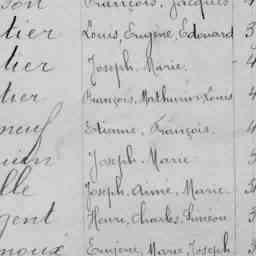 François, Jacques
tier Louis, Eugène, Edouard 3
tier Joseph-Marie. 4
tier François, Mathurin-Louis 4
neuf Etienne, François. 4
Joseph-Marie
lle Joseph-Anne, Marie- 3
gent Henri, Charles, Siméon 3
noux Eugène, Marie, Joseph